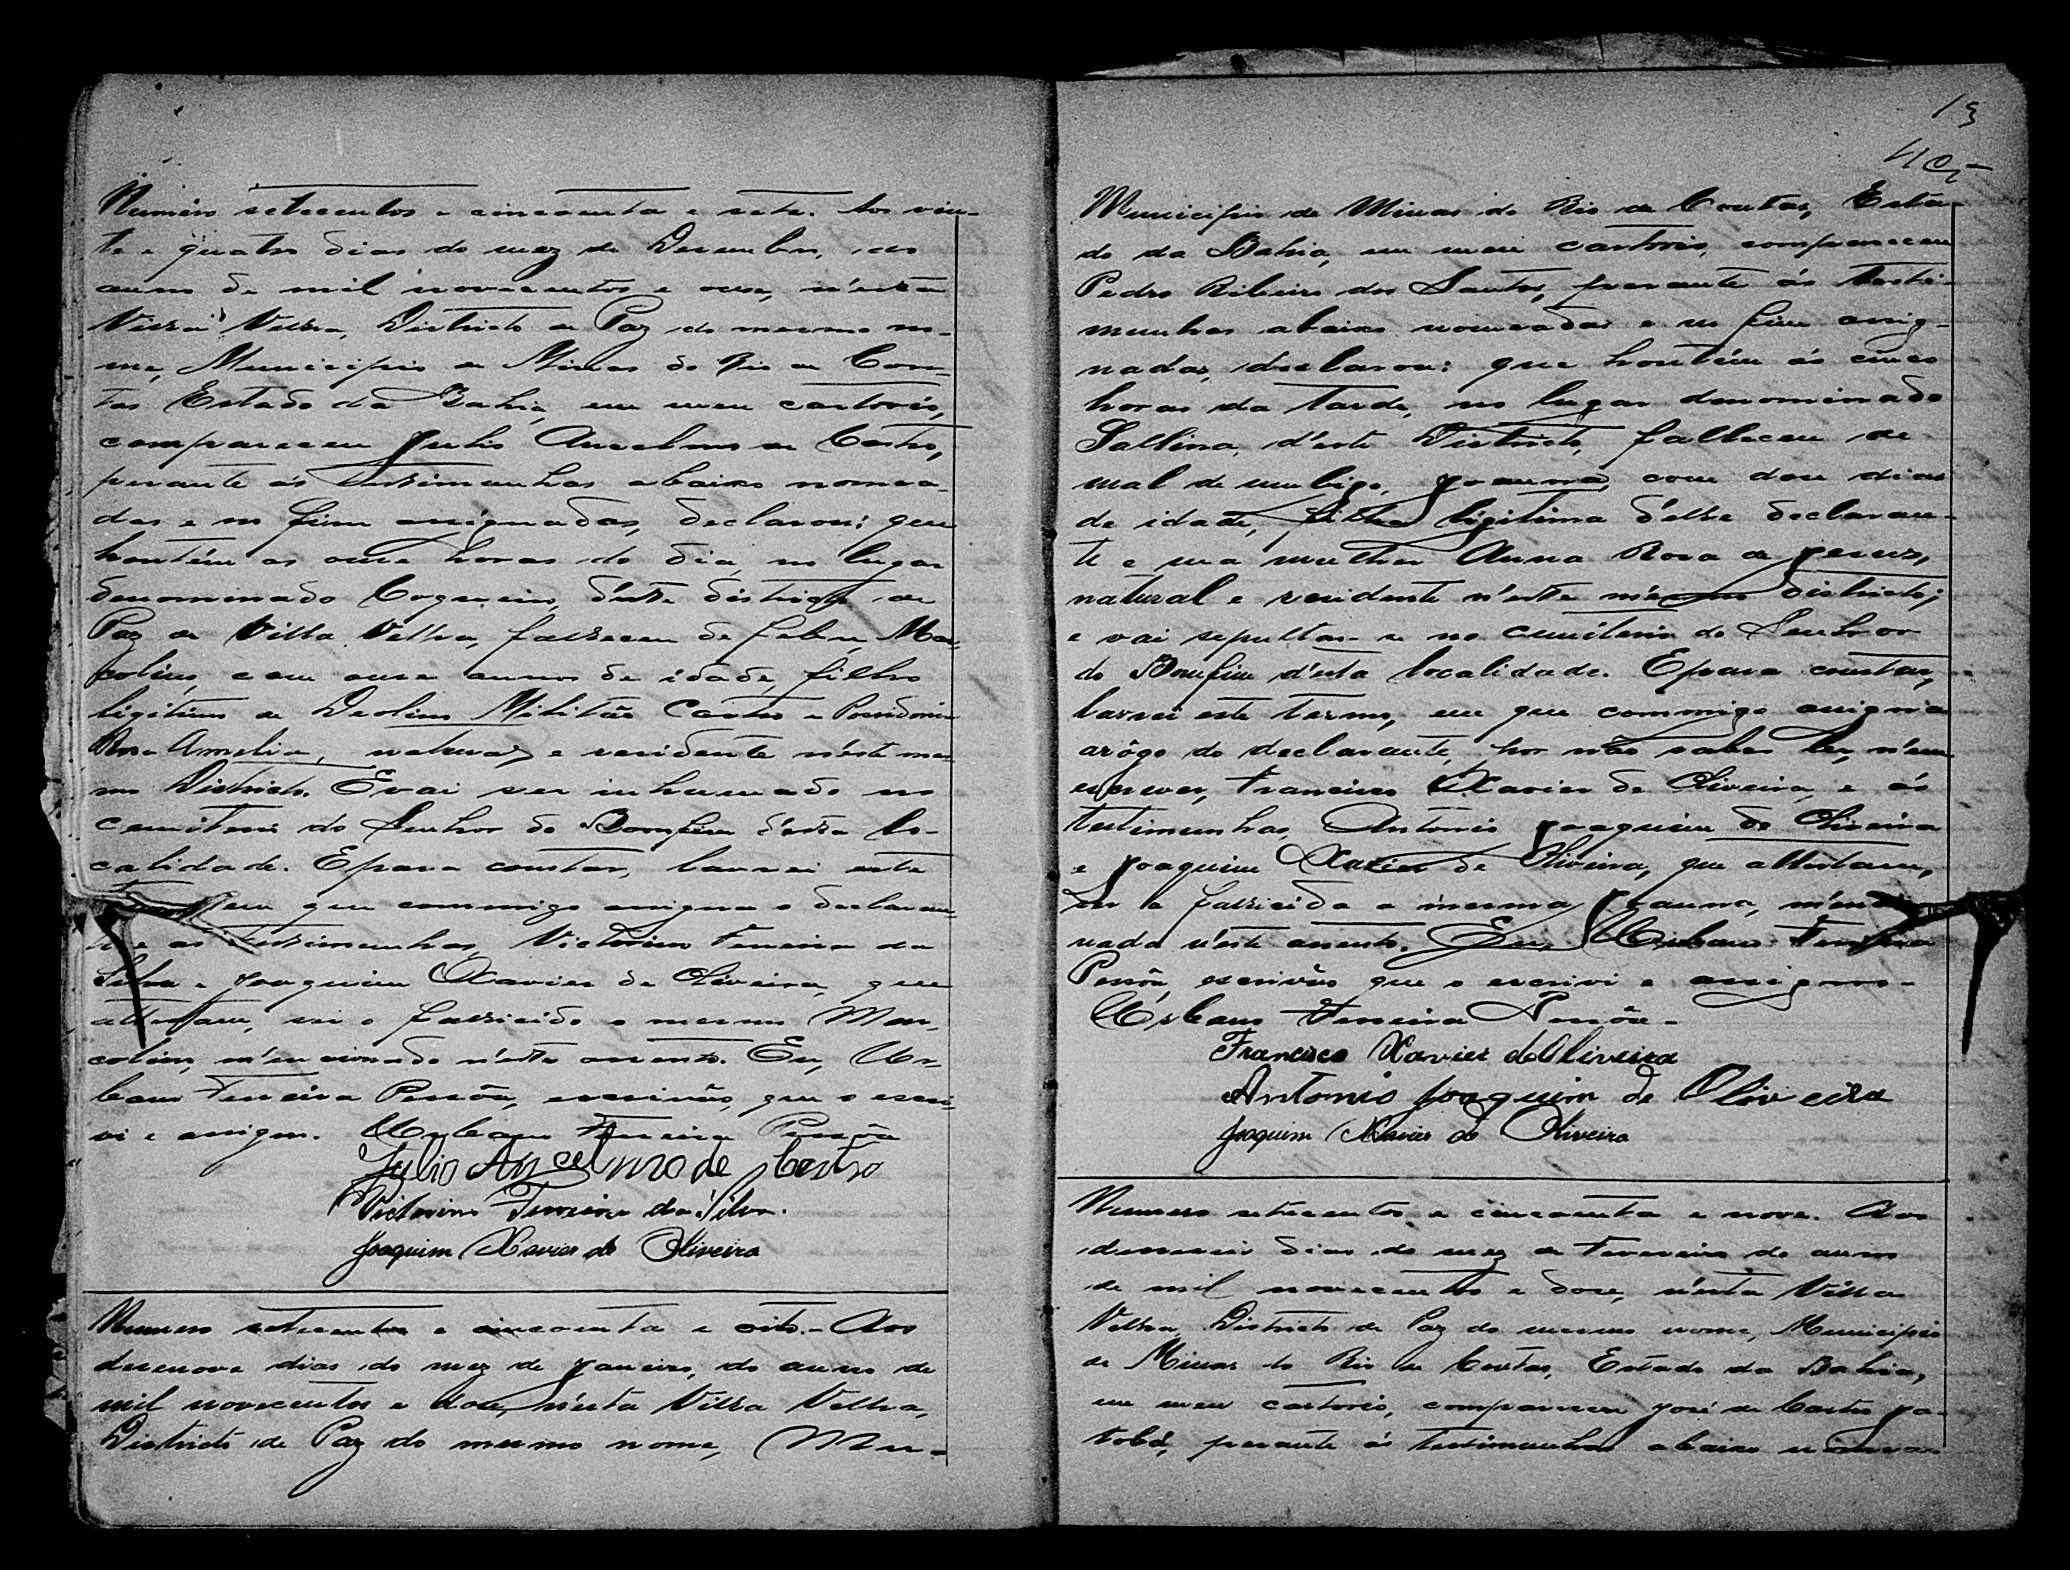 Numéro setecentos e cincoenta e sete. Aos vin-
te e quatro dias do mez de Desembro, do
anno de mil novecentos e onse, n'esta
Villa Velha, Districto de Paz do mesmo no-
me, Municipio de Minas do Rio de Con-
tas Estado da Bahia, em meu cartorio,
compareceu Julio Anselmo de Castro,
perante as testimunhas abaixo nomea-
das e no fim assignadas, declarou: que
hontém as onse horas do dia, no lugar
denominado Coqueiro, d'este districto de
Paz de Villa Velha, falleceu de febre, Mar-
colino, com onse annos de idade, filho
ligitimo de Deolino Militão Castro e Possidonia
Rosa Amelia, natural e residente n'este mes-
mo Districto. E vai ser inhumado no
cemiterio do Senhor do Bomfim d'esta lo-
calidade. E para constar, lavrei este
termo em que commigo assigna o declaran-
te e as testimunhas, Victorino Ferreira da
Silva e Joaquim Xavier de Oliveira, que
attestam, ser o fallecido o mesmo Mar-
colino, mencionado n'este assento. Eu, Ur-
bano Ferreira Pessôa, escrivão, que o escri-
vi e assigno. Urbano Ferreira Pessôa
Julio Ancelmo de Castro
Victorino Ferreira da Silva.
Joaquim Xavier de Oliveira
Numero setecentos e cincoenta e oito. Aos
desenove dias do mez de Janeiro, do anno de
mil novecentos e dose, n'esta Villa Velha,
Districto de Paz do mesmo nome, Mu-
13
Municipio de Minas do Rio de Contas, Esta-
do da Bahia, em meu cartorio, compareceu
Pedro Ribeiro dos Santos, perante ás testi-
munhas abaixo nomeadas e no fim assig-
nadas, declarou: que hontém ás cinco
horas da tarde, no lugar denominado
Sallina, d'este Districto, falleceu de
mal de umbigo, Joanna, com dose dias
de idade, filha ligitima d'elle declaran-
te e sua mulher Anna Rosa de Jesus,
natural e residente n'este mesmo districto;
e vai sepultar-se no cemiterio do Senhor
do Bomfim d'esta localidade. E para constar,
lavrei este termo, em que commigo assigna
arôgo do declarante, por não saber ler, n'em
escrever, Francisco Xavier de Oliveira, e ás
testimunhas, Antonio Joaquim de Oliveira
e Joaquim Xavier de Oliveira, que attestam,
ser a fallecida a mesma Joanna, mencio-
nada n'este assento. Eu, Urbano Ferreira
Pessôa, escrivão que o escrivi e assigno.
Urbano Ferreira Pessôa.
Francisco Xavier de Oliveira
Antonio Joaquim de Oliveira
Joaquim Xavier de Oliveira
Numero setecentos e cincoenta e nove. Aos
deseseis dias do mez de Fevereiro do anno
de mil novecentos e dose, n'esta Villa
Velha, Districto de Paz do mesmo nome, Municipio
de Minas do Rio de Contas, Estado da Bahia,
em meu cartorio, compareceu José de Castro Ja-
tobá, perante ás testimunhas abaixo nomea-